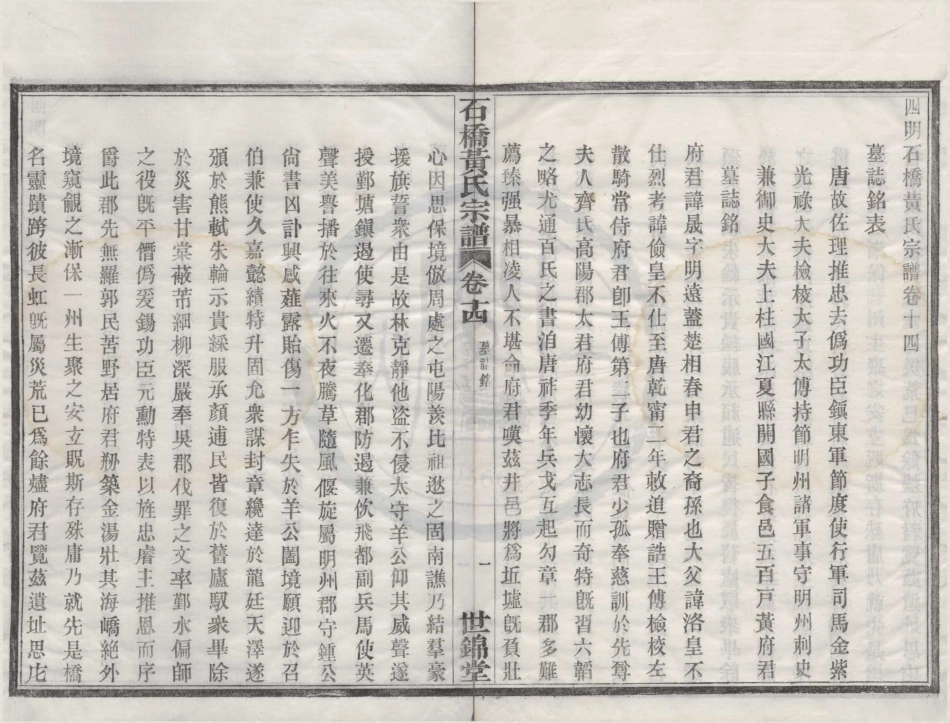 四明石橋黃氏宗譜卷十四
墓誌銘表
唐故佐理推忠去僞功臣鎭東軍節度使行軍司馬金紫
光祿大夫檢校太子太傅持節明州諸軍事守明州刺史
兼御史大夫上柱國江夏縣開國子食邑五百戸黃府君
墓誌銘
府君諱晟字明遠蓋楚相春申君之裔孫也大父諱洛皇不
仕烈考諱儉皇不仕至唐乾甯二年敕追贈誥王傅檢校左
散騎常侍府君卽王傅第二子也府君少孤奉慈訓於先尊
夫人齊氏高陽郡太君府君幼懷大志長而奇特旣習六韜
之略尤通百氏之書洎唐祚季年兵戈互起勾章一郡多難
薦臻强暴相淩人不堪命府君嘆茲井邑將爲坵墟旣負壯
石橋黃氏宗譜
卷十四
墓誌銘
一
世錦堂
心因思保境倣周處之屯陽羨比祖逖之固南譙乃結羣豪
援旗誓衆由是故林克靜他盜不侵太守羊公仰其威聲遂
授鄞塘鎭遏使尋又遷奉化郡防遏兼佽飛都副兵馬使英
聲美譽播於往來火不夜騰草隨風偃旋屬明州郡守鍾公
尙書凶訃興感薤露貽傷一方乍失於羊公闔境願迎於召
伯兼使久嘉懿績特升固允衆謀封章纔達於龍廷天澤遂
頒於熊軾朱輪示貴綵服承顏逋民皆復於舊廬馭衆畢除
於災害甘棠蔽芾細柳深嚴奉吳郡伐罪之文率鄞水偏師
之役旣平僭僞爰錫功臣元勳特表以旌忠睿主推恩而序
爵此郡先無羅郭民苦野居府君剙築金湯壯其海嶠絶外
境窺覦之漸保一州生聚之安立旣斯存殊庸乃就先是橋
名靈蹟跨彼長虹旣屬災荒已爲餘燼府君覽茲遺址思庀